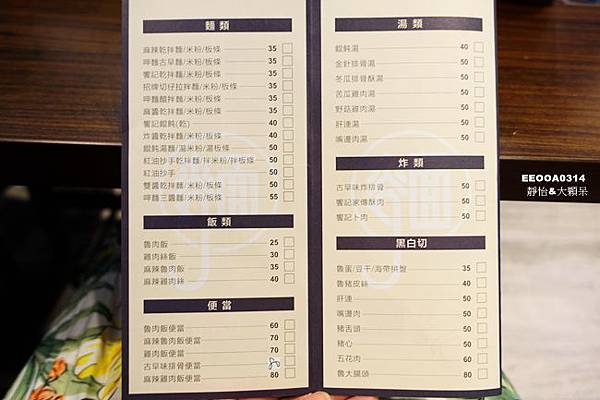 麵類
麻辣乾拌麵/米粉/板條 35
呷麵古早麵/米粉/板條 35
饗記乾拌麵/米粉/板條 35
招牌切仔拉拌麵/米粉/板條 35
呷麵醋拌麵/米粉/板條 35
麻醬乾拌麵/米粉/板條 35
饗記餛飩(乾) 40
炸醬乾拌麵/米粉/板條 40
餛飩湯麵/湯米粉/湯板條 50
紅油抄手乾拌麵/拌米粉/拌板條 50
紅油抄手 50
雙醬乾拌麵/米粉/板條 50
呷麵三醬麵/米粉/板條 55
飯類
魯肉飯 25
雞肉絲飯 30
麻辣魯肉飯 35
麻辣雞肉絲 40
便當
魯肉飯便當 60
麻辣魯肉飯便當 70
雞肉飯便當 70
古早味排骨便當
麻辣雞肉飯便當 80
湯類
餛飩湯 40
金針排骨湯 50
冬瓜排骨酥湯 50
苦瓜雞肉湯 50
野菇雞肉湯 50
肝連湯 50
嘴邊肉湯 50
炸類
古早味炸排骨 50
饗記家傳酥肉 50
饗記卜肉 50
黑白切
魯蛋/豆干/海帶拼盤 35
魯豬皮絲 40
肝連 50
嘴邊肉 50
豬舌頭 50
豬心 50
五花肉 60
魯大腸頭 80
EEOOA0314
靜怡&大顆呆